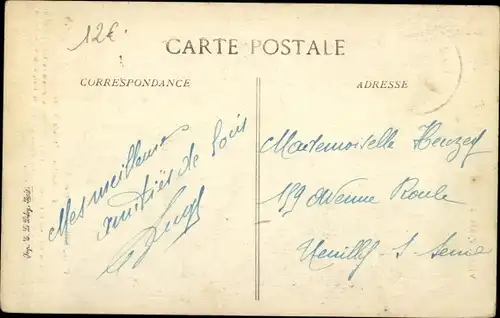 12€
CARTE POSTALE
CORRESPONDANCE
ADRESSE
Mes meilleures
amitiés de Loin
Mademoiselle Henzey
159 Avenue Roule
Neuilly-S-Seine